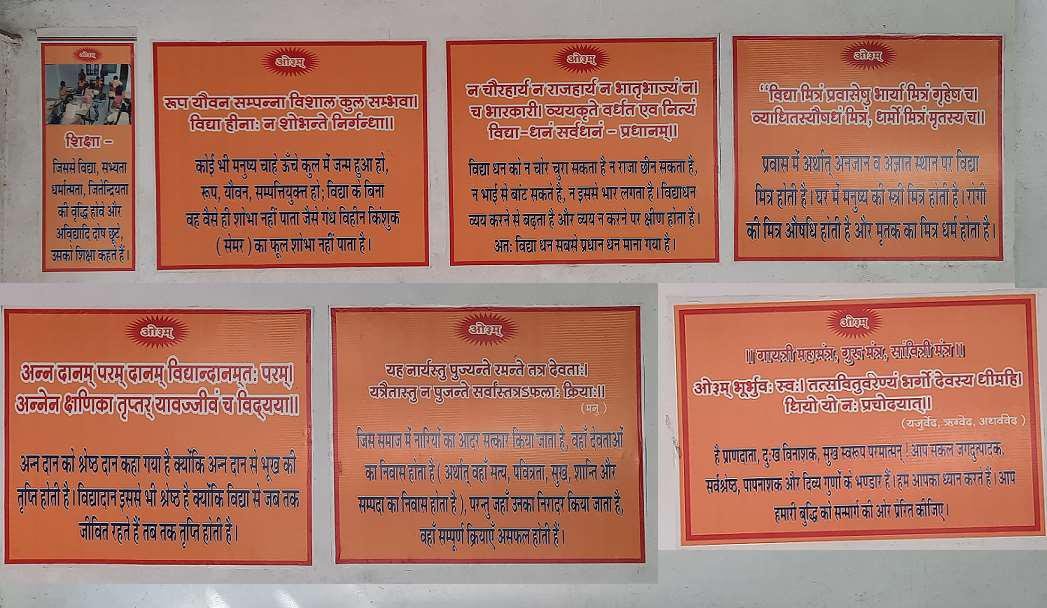 ओ३म्
शिक्षा -
जिससे विद्या, सभ्यता
धर्मात्मता, जितेन्द्रियता
की वृद्धि होवे और
अविद्यादि दोष छूटे,
उसको शिक्षा कहते हैं।
ओ३म्
रूप यौवन सम्पन्ना विशाल कुल सम्भवा।
विद्या हीनाः न शोभन्ते निर्गन्धा।।
कोई भी मनुष्य चाहे ऊँचे कुल में जन्म हुआ हो,
रूप, यौवन, सम्पत्तियुक्त हो, विद्या के बिना
वह वैसे ही शोभा नहीं पाता जैसे गंध विहीन किंशुक
( सेमर ) का फूल शोभा नहीं पाता है।
ओ३म्
न चौरहार्य न राजहार्य न भातृभाज्यं न।
च भारकारी। व्ययकृते वर्धत एव नित्यं
विद्या-धनं सर्वधनं - प्रधानम्।।
विद्या धन को न चोर चुरा सकता है न राजा छीन सकता है,
न भाई से बांट सकते है, न इससे भार लगता है। विद्याधन
व्यय करने से बढ़ता है और व्यय न करने पर क्षीण होता है।
अतः विद्या धन सबसे प्रधान धन माना गया है।
ओ३म्
“विद्या मित्रं प्रवासेषु भार्या मित्रं गृहेष च।
व्याधितस्यौषधं मित्रं, धर्मो मित्रं मृतस्य च।।
प्रवास में अर्थात् अनजान व अज्ञात स्थान पर विद्या
मित्र होती है। घर में मनुष्य की स्त्री मित्र होती है। रोगी
की मित्र औषधि होती है और मृतक का मित्र धर्म होता है।
ओ३म्
अन्न दानम् परम् दानम् विद्यान्दानमृतः परम्।
अन्नेन क्षणिका तृप्तर् यावज्जीवं च विद्यया।।
अन्न दान को श्रेष्ठ दान कहा गया है क्योंकि अन्न दान से भूख की
तृप्ति होती है। विद्यादान इससे भी श्रेष्ठ है क्योंकि विद्या से जब तक
जीवित रहते हैं तब तक तृप्ति होती है।
ओ३म्
यह नार्यस्तु पुज्यन्ते रमन्ते तत्र देवताः।
यत्रैतास्तु न पुजन्ते सर्वास्तत्रऽफलाः क्रियाः।।
(मनु)
जिस समाज में नारियों का आदर सत्कार किया जाता है, वहाँ देवताओं
का निवास होता है ( अर्थात् वहाँ सत्य, पवित्रता, सुख, शान्ति और
सम्पदा का निवास होता है ), परन्तु जहाँ उनका निरादर किया जाता है,
वहाँ सम्पूर्ण क्रियाएँ असफल होती हैं।
ओ३म्
।। गायत्री महामंत्र, गुरू मंत्र, सावित्री मंत्र ।।
ओ३म् भूर्भुवः स्वः। तत्सवितुर्वरेण्यं भर्गो देवस्य धीमहि।
धियो यो नः प्रचोदयात्।।
(यजुर्वेद, ऋग्वेद, अथर्ववेद )
हे प्राणदाता, दुःख विनाशक, सुख स्वरूप परमात्मन् ! आप सकल जगदुत्पादक,
सर्वश्रेष्ठ, पापनाशक और दिव्य गुणों के भण्डार हैं। हम आपका ध्यान करते हैं। आप
हमारी बुद्धि को सन्मार्ग की ओर प्रेरित कीजिए।